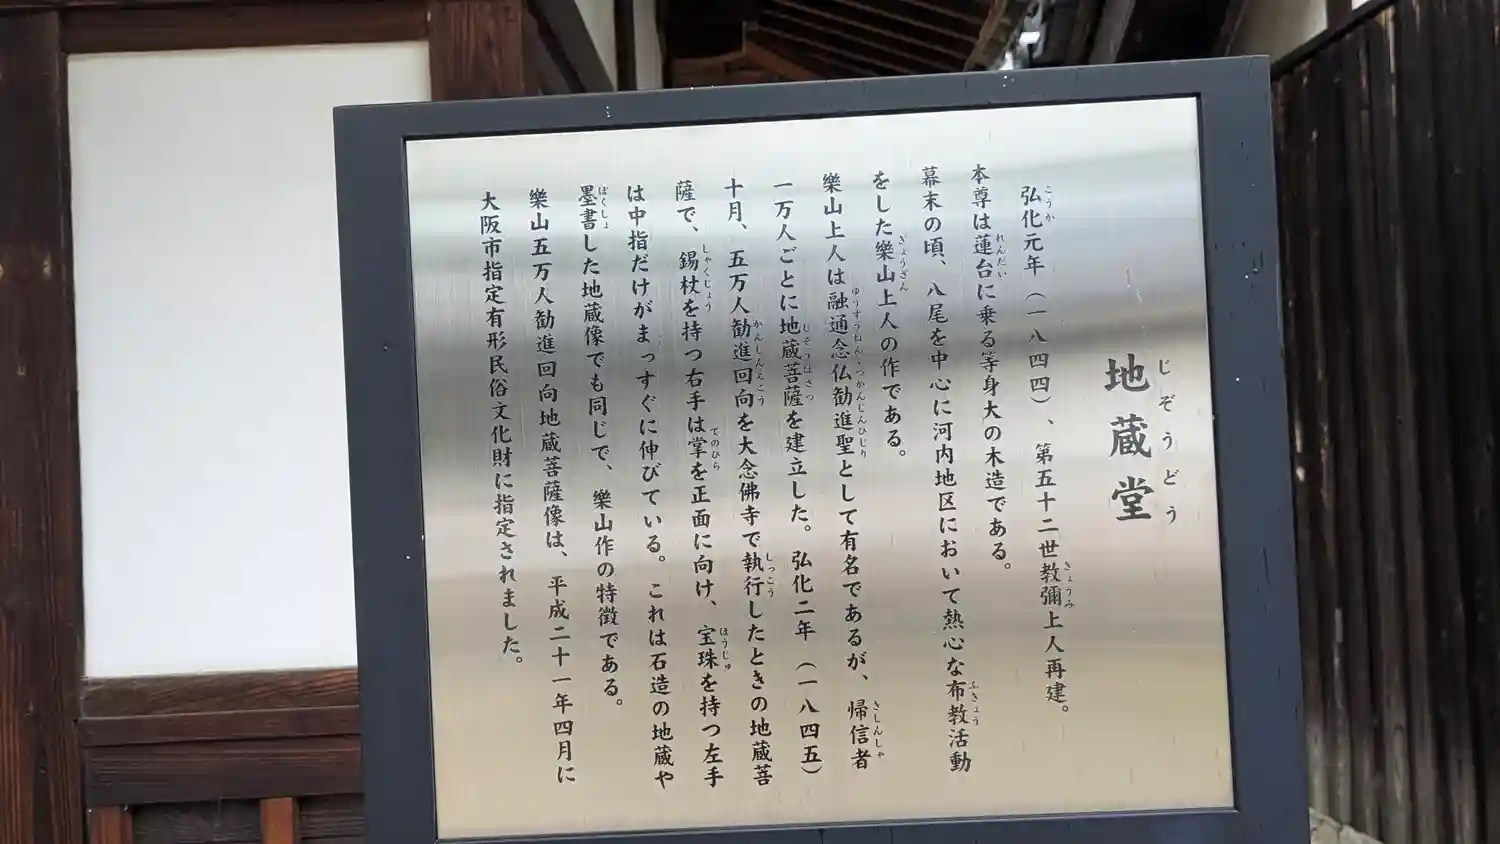 地蔵堂
じぞうどう
弘化元年（一八四四）、第五十二世教彌上人再建。
こうか
きょうみ
本尊は蓮台に乗る等身大の木造である。
れんだい
幕末の頃、八尾を中心に河内地区において熱心な布教活動
ふきょう
をした樂山上人の作である。
ぎょうざん
樂山上人は融通念仏勧進聖として有名であるが、帰信者
かんじんひじり
きしんしゃ
一万人ごとに地蔵菩薩を建立した。弘化二年（一八四五）
十月、五万人勧進回向を大念佛寺で執行したときの地蔵菩
しっこう
薩で、錫杖を持つ右手は掌を正面に向け、宝珠を持つ左手
しゃくじょう
てのひら
ほうじゅ
は中指だけがまっすぐに伸びている。これは石造の地蔵や
墨書した地蔵像でも同じで、樂山作の特徴である。
ぼくしょ
樂山五万人勧進回向地蔵菩薩像は、平成二十一年四月に
大阪市指定有形民俗文化財に指定されました。